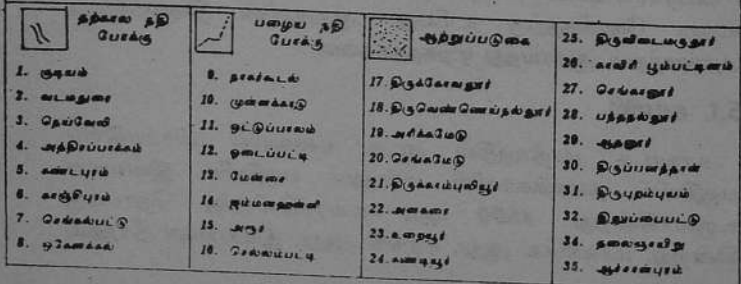 தற்கால நதி போக்கு
பழைய நதி போக்கு
ஆற்றுப்படுகை
1. குடியம்
2. வடமதுரை
3. நெய்வேலி
4. அத்திரப்பாக்கம்
5. கண்டபுரம்
6. காஞ்சிபுரம்
7. செங்கல்பட்டு
8. ஒகேனக்கல்
9. நாகர்கூடல்
10. முள்ளக்காடு
11. ஒட்டுப்பாலம்
12. ஓடைப்பட்டி
13. மேன்சை
14. ஜம்மனஹள்ளி
15. அரூர்
16. செல்லம்பட்டி
17. திருக்கோவலூர்
18. திருவெண்ணெய்நல்லூர்
19. அரிக்கமேடு
20. செங்கமேடு
21. திருக்காம்புலியூர்
22. அளகரை
23. உறையூர்
24. கண்டியூர்
25. திருவிடைமருதூர்
26. காவிரி பூம்பட்டினம்
27. செங்கானூர்
28. பந்தநல்லூர்
29. ஆதனூர்
30. திருப்பனந்தாள்
31. திருபுறம்புயம்
32. இலுப்பைபட்டு
34. தலைஞாயிறு
35. ஆச்சாள்புரம்